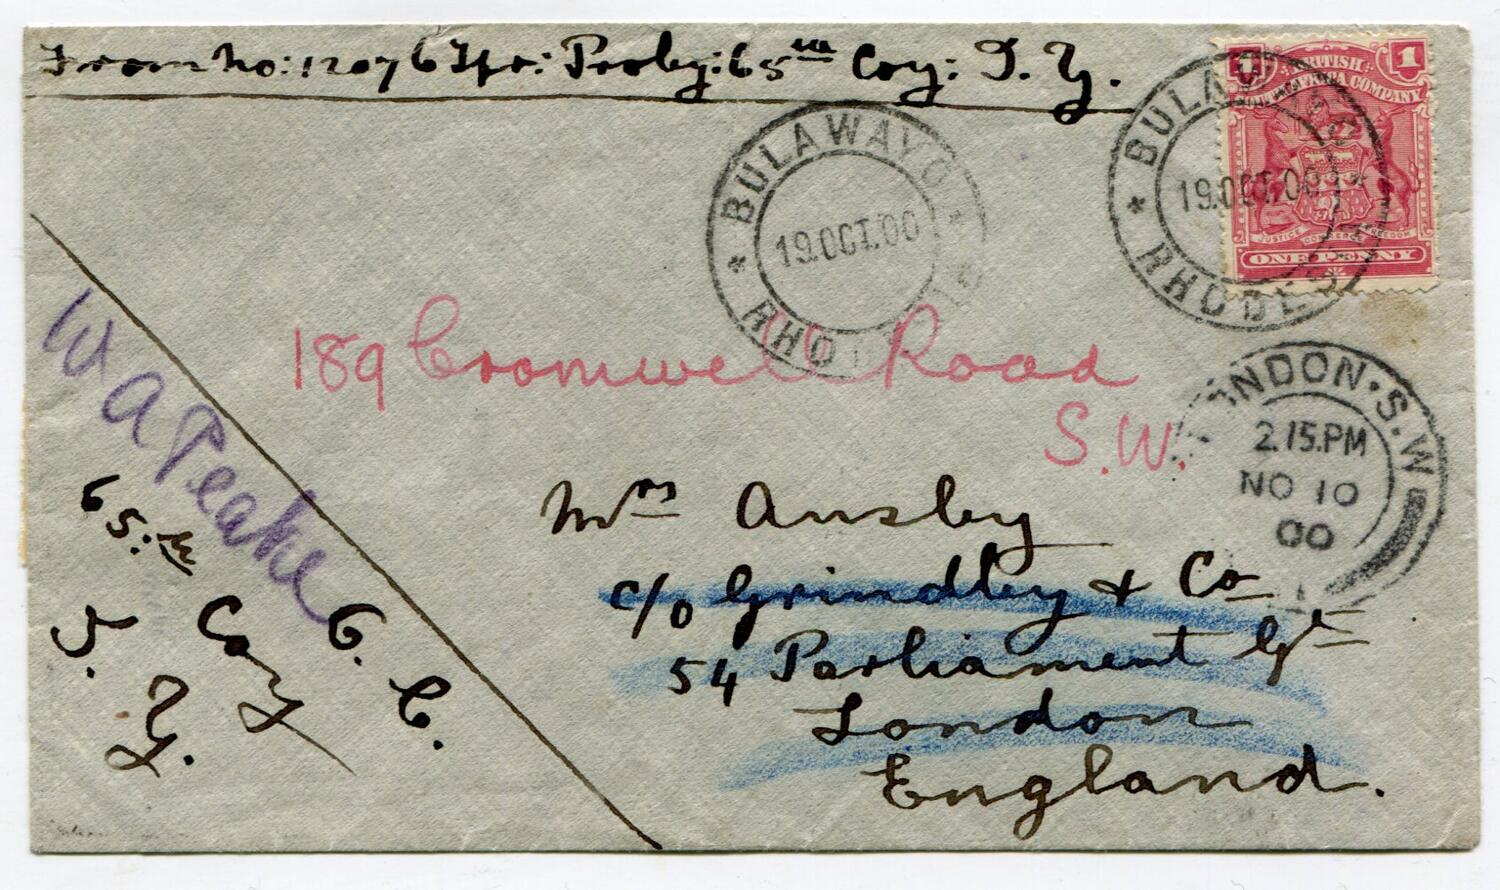 From No: 12076 Tpr: Proby: 65th Coy: I. Y.
1 BRITISH 1
SOUTH AFRICA COMPANY
JUSTICE COMMERCE FREEDOM
ONE PENNY
BULAWAYO
19.OCT.00
RHODESIA
BULAWAYO
19.OCT.00
RHODESIA
189 Cromwell Road
S.W.
LONDON.S.W
2.15.PM
NO 10
00
Mrs Ansley
c/o Grindley & Co
54 Parliament St
London
England.
W A Peake
65th Coy
I. Y.
O. C.